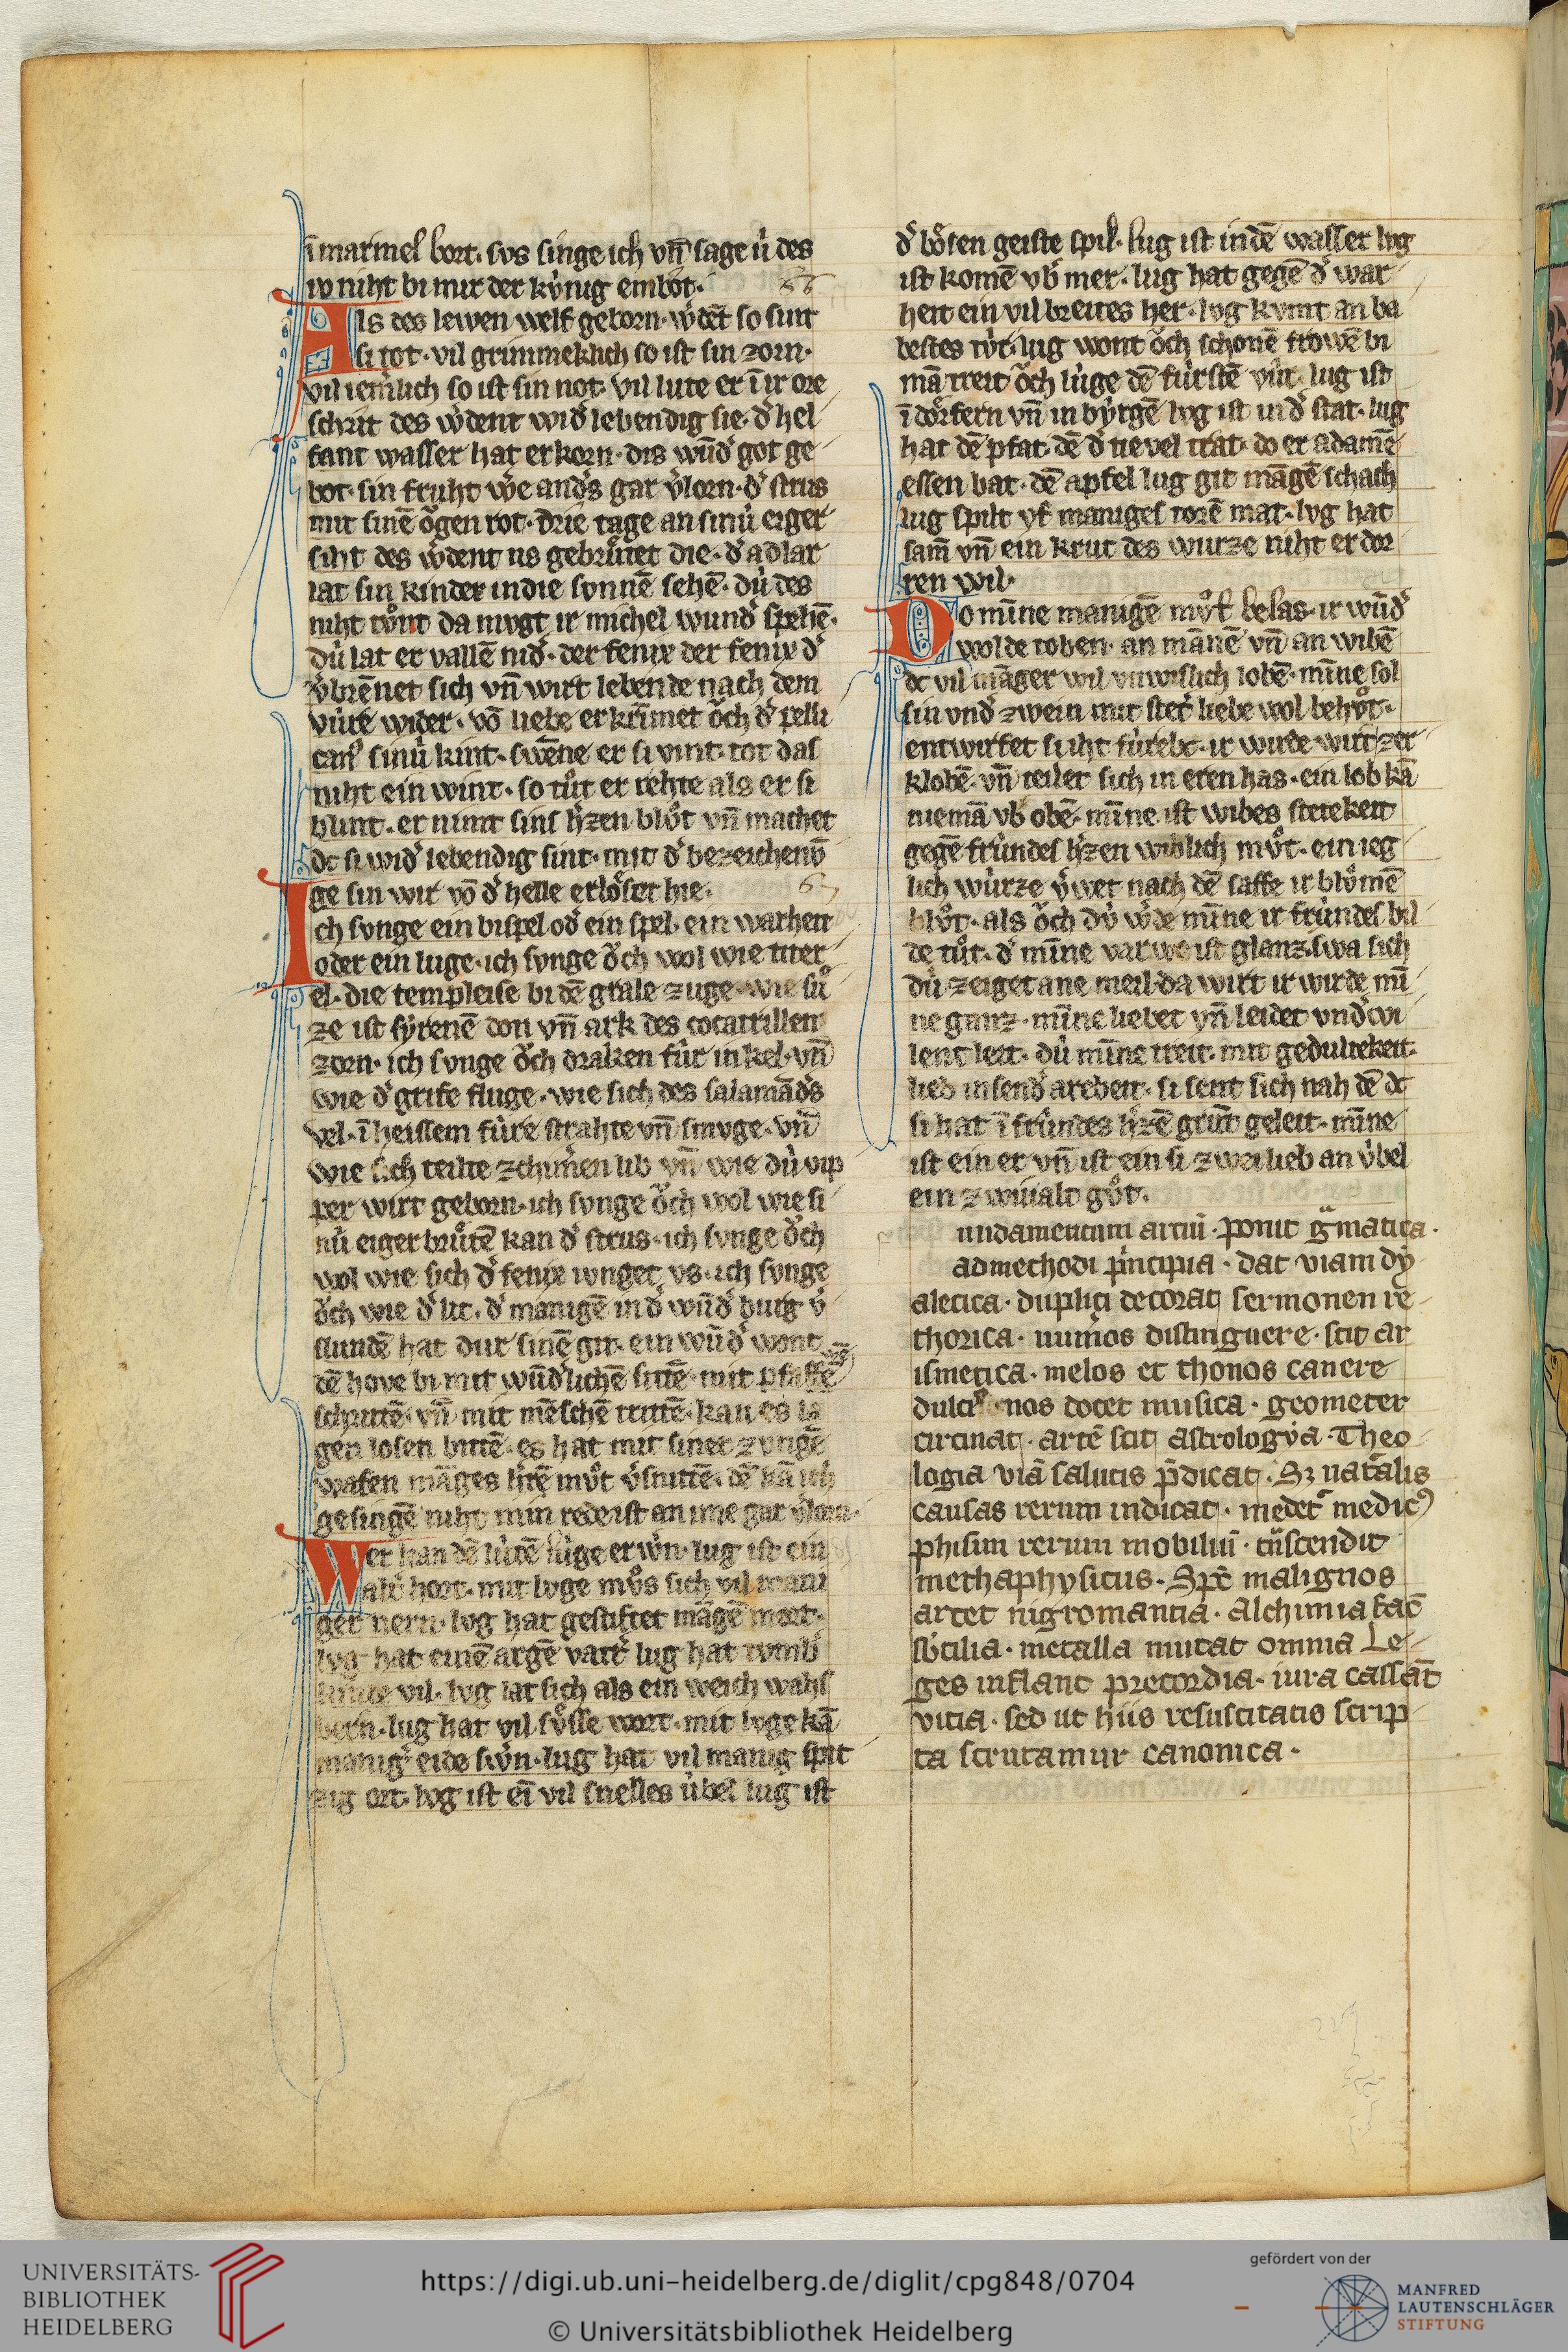 ī marmel bort. svs singe ich vn̄ sage ú des
iv niht bi mir der kv́nig embot.
66
Als des lewen welf geborn. wͤdēt so sint
si tot. vil grimmeklich so ist sin zorn.
vil iem̾lich so ist sin not. vil lute er ī ir ore
schrit des wͤdent wid̾ lebendig sie. d̾ hel
fant wasser hat erkorn. dis wūd̾ got ge
bot. sin fruht wͤe and̾s gar v̾lorn. d̾ strus
mit sinē oͮgen rot. drie tage an sinú eiger
siht des wͤdent us gebruͤtet die. d̾ adlar
lat sin kinder in die svnnē sehē. dú des
niht tuͦnt da mvgt ir michel wund̾ spehē.
dú lat er vallē nid̾. der fenix der fenix d̾
v̾brēnet sich vn̄ wirt lebende nach dem
vúre wider. vō liebe er krīmet oͮch d̾ pelli
can⁹ sinú kint. swēne er si vint. tot das
niht ein wint. so tuͦt er rehte als er si
blint. er nimt sins h̾zen bluͦt vn̄ machet
dc si wid̾ lebendig sint. mit d̾ bezeichenv̄
ge sin wir vō d̾ helle erloͤset hie.
67
Ich singe ein bispel od̾ ein spel. ein warheit
oder ein luge. ich singe oͮch wol wie titer
el. die templeise bi dē grale zuge. wie suͤ
ze ist syrenē don vn̄ ark des cocatrillen
zorn. ich singe oͮch draken fúr in kel. vn̄
wie d̾ grife fluge. wie sich des salamād̾s
vel. ī heissem fúre strahte vn̄ smvge. vn̄
wie sich teilte zchim̾en lib vn̄ wie dú vip
per wirt geborn. ich singe oͮch wol wie si
nú eiger bruͤtē kan d̾ strus. ich singe oͮch
wol wie sich d̾ fenix iunget vs. ich singe
oͮch wie d̾ lit. d̾ manigē in d̾ wūd̾ burg v̾
slundē hat dur sinē git. ein wūd̾ wont
dē hove bi mit wūd̾lichē sittē. mit pfaffē
schrittē. vn̄ mit mēschē trittē. kan es la
gen losen bittē. es hat mit siner zvngē
wafen māges h̾rē muͦt v̾snittē. dē kā ich
gesingē niht min rede ist an ime gar v̾lorn.
Wer kan dē lútē lúge erwͤn. lug ist ein
alt̾ hort. mit lvge muͦs sich vil mani
ger nern. lvg hat gestiftet māgē mort.
lvg hat einē argē vatt̾ lug hat tvmb̾
kinde vil. lvg lat sich als ein weich wahs
bern. lug hat vil suͤsse wort. mit lvge kā
manig̾ eide swͤn. lug hat vil manig spit
zig ort. lvg ist eī vil snelles úbel lug ist
d̾ boͤsen geiste spil. lug ist in dē wasser lvg
ist komē vb̾ mer. lug hat gegē d̾ war
heit ein vil breites her. lvg kvmt an ba
bestes túr. lug wont oͮch schonē frowē bi
mā treit oͮch lúge dē fúrstē vúr. lug ist
ī doͤrfern vn̄ in bv́rgē lvg ist in d̾ stat. lug
hat dē pfat. dē d̾ tievel trat. do er adamē
essen bat. dē apfel lug git māgē schach
lug spilt vf maniges torē mat. lvg hat
sam̄ vn̄ ein krut des wurze niht er dor
ren wil.
Do mīne manigē muͦt besas. ir wūd̾
wolde toben. an mānē vn̄ an wibē
dc vil māger wil vnwislich lobē. mīne sol
sin vnd̾ zwein mit stet̾ liebe wol behuͦt.
entwirfet si iht fúrebc. ir wirde wirt zer
klobē. vn̄ teilet sich in eren has. ein lob kā
niemā vb̾ obē. mīne ist wibes stetekeit
gegē frúndes h̾zen wiblich muͦt. ein ieg
lich wúrze v̾wet nach dē saffe ir bluͦmē
bluͦt. als oͮch dv́ wͤde mīne ir frúndes bil
de tuͦt. d̾ mīne varwe ist glanz. swa sich
dú zeiget ane meil da wirt ir wirde mī
ne ganz. mīne liebet vn̄ leidet vnd̾ wi
lent leit. dú mīne treit. mit gedultekeit.
lieb in send̾ arebeit. si sent sich nah dē dc
si hat ī frúndes h̾zē grūt geleit. mīne
ist ein er vn̄ ist ein si zwei lieb an úbel
ein zwiualt guͦt.
undamentum artiū. ponit g̾matica.
ad methodi p̾ncipia. dat viam dy
aletica. duplici decorat sermonem re
thorica. num̾os distinguere. scit ar
ismetica. melos et thonos canere
dulcit̾ nos docet musica. geometer
circinat. artē scit astrologya. Theo
logia viā salutis p̄dicat. Sz nat̾alis
causas rerum indicat. medet᷑ medic⁹
phisim rerum mobiliū. t᷑nscendit
methaphysicus. Spc̄ malignos
artet nigromantia. alchimia fac̄
sb̾tilia. metalla mutat omnia Le
ges inflant precordia. iura cassāt
vitia. sed ut hiis resuscitatis scrip
ta scrutamur canonica.
UNIVERSITÄTS-
BIBLIOTHEK
HEIDELBERG
https://digi.ub.uni-heidelberg.de/diglit/cpg848/0704
© Universitätsbibliothek Heidelberg
gefördert von der
MANFRED
LAUTENSCHLÄGER
STIFTUNG